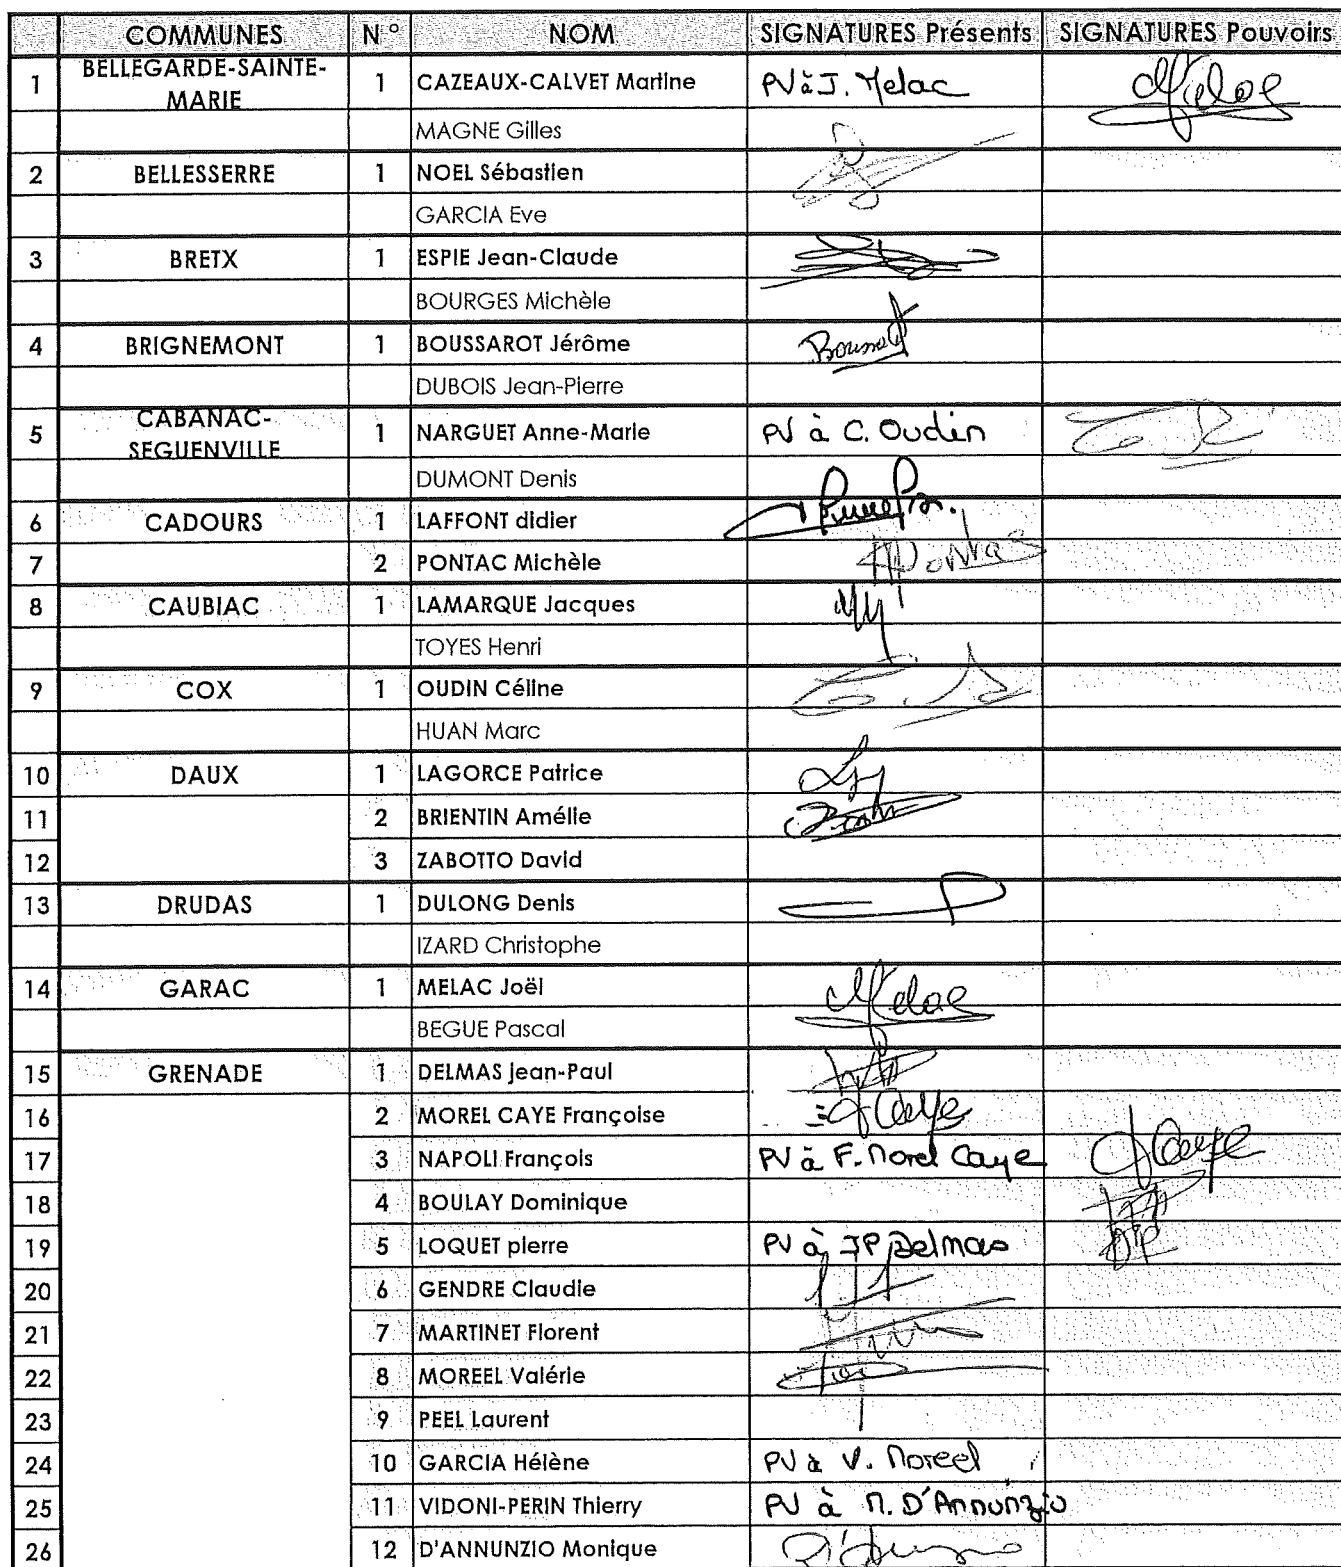 COMMUNES N° NOM SIGNATURES Présents SIGNATURES Pouvoirs
1 BELLEGARDE-SAINTE-MARIE 1 CAZEAUX-CALVET Martine PV à J. Melac
MAGNE Gilles
2 BELLESSERRE 1 NOEL Sébastien
GARCIA Eve
3 BRETX 1 ESPIE Jean-Claude
BOURGES Michèle
4 BRIGNEMONT 1 BOUSSAROT Jérôme
DUBOIS Jean-Pierre
5 CABANAC-SEGUENVILLE 1 NARGUET Anne-Marie PV à C. Oudin
DUMONT Denis
6 CADOURS 1 LAFFONT didier
7 2 PONTAC Michèle
8 CAUBIAC 1 LAMARQUE Jacques
TOYES Henri
9 COX 1 OUDIN Céline
HUAN Marc
10 DAUX 1 LAGORCE Patrice
11 2 BRIENTIN Amélie
12 3 ZABOTTO David
13 DRUDAS 1 DULONG Denis
IZARD Christophe
14 GARAC 1 MELAC Joël Melac
BEGUE Pascal
15 GRENADE 1 DELMAS Jean-Paul
16 2 MOREL CAYE Françoise
17 3 NAPOLI François PV à F. Morel Caye
18 4 BOULAY Dominique
19 5 LOQUET pierre PV à JP Delmas
20 6 GENDRE Claudie
21 7 MARTINET Florent
22 8 MOREEL Valérie
23 9 PEEL Laurent
24 10 GARCIA Hélène PV à V. Moreel
25 11 VIDONI-PERIN Thierry PV à M. D'Annunzio
26 12 D'ANNUNZIO Monique